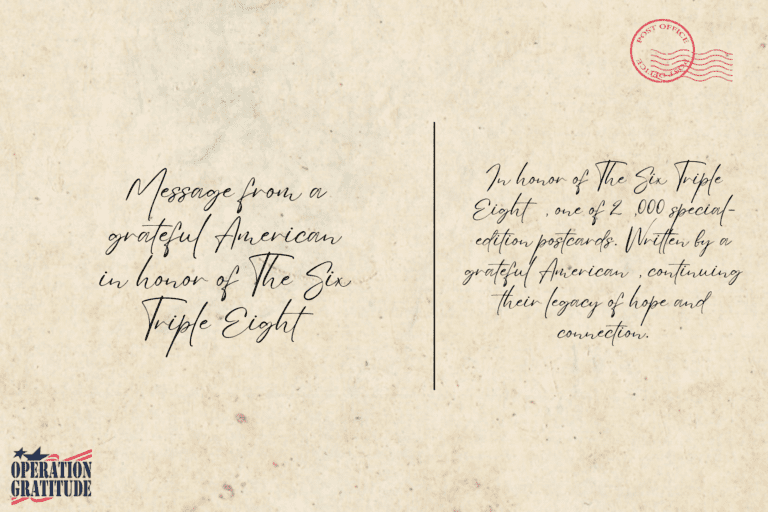 POST OFFICE
POST OFFICE
Message from a
grateful American
in honor of The Six
Triple Eight
In honor of The Six Triple
Eight , one of 2 ,000 special-
edition postcards. Written by a
grateful American , continuing
their legacy of hope and
connection.
OPERATION
GRATITUDE